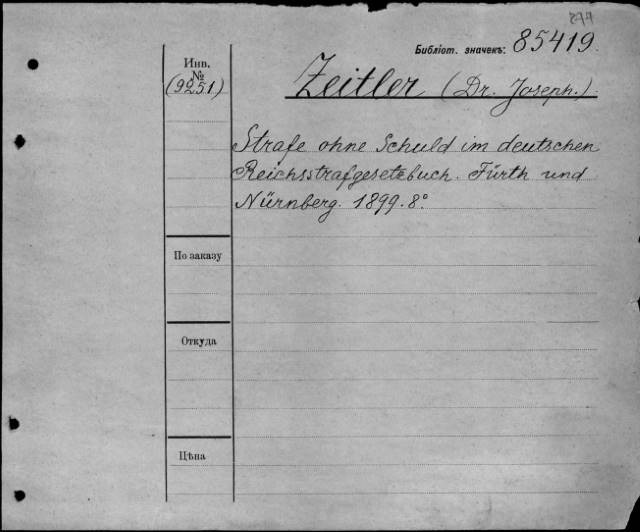 Библіот. значекъ: 85419.
Инв.
№
(9251)
Zeitler (Dr. Joseph.)
Strafe ohne Schuld im deutschen
Reichsstrafgesetzbuch. Fürth und
Nürnberg. 1899. 8°.
По заказу
Откуда
Цѣна